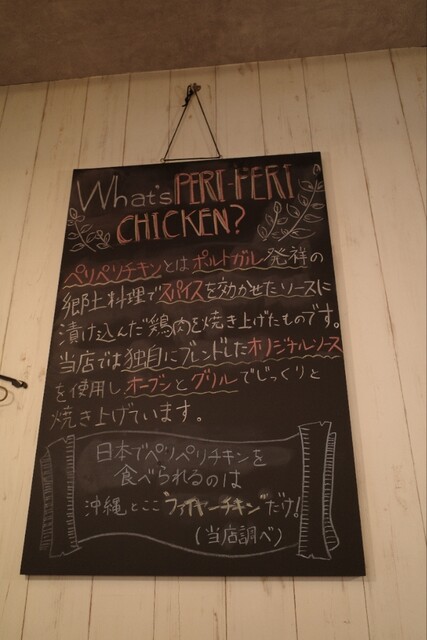 What's PERI-PERI
CHICKEN?
ペリペリチキンとはポルトガル発祥の
郷土料理でスパイスを効かせたソースに
漬け込んだ鶏肉を焼き上げたものです。
当店では独自にブレンドしたオリジナルソース
を使用し、オーブンとグリルでじっくりと
焼き上げています。
日本でペリペリチキンを
食べられるのは
沖縄とここ"ファイヤーチキン"だけ!
(当店調べ)